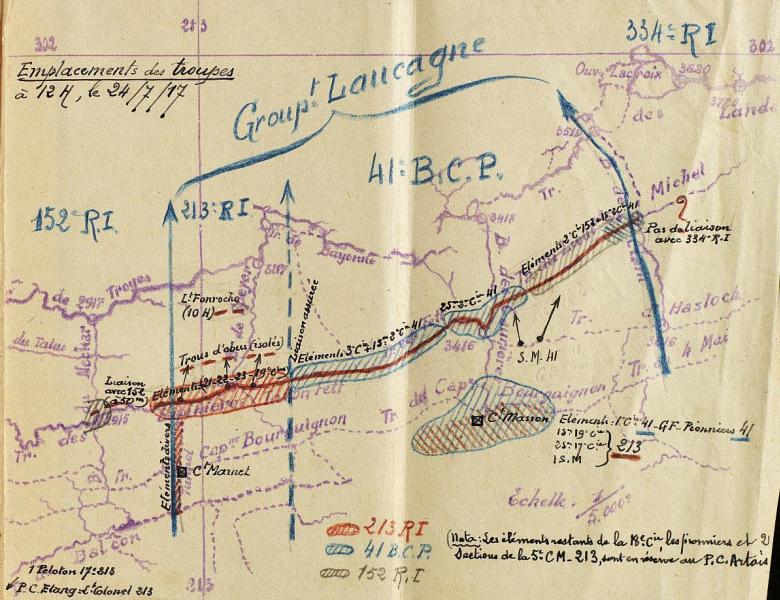 302
213
302
Emplacements des troupes
à 12H, le 24/7/17
Groupt Laucagne
334e R I
Ouv. Lacroix
3620
3720
des
Lande
3515
41e B.C.P.
152e R.I.
213e R.I.
Tr.
Michel
3418
Tr. de Bayonne
3117
Pas de liaison
avec 334e R.I
Eléments 2e Cie 152 + 15e 2e Cie 41
de 2917
Troyes
Lt Fonroche
(10 H)
Liaison assurée
25-3e Cie 41
Hasloch
Tr.
du Talus
Trous d'obus (isolés)
Eléments 3e Cie, 15-2e Cie 41
3416
S.M. 41
4 Mai
Liaison
avec 152
(à 50m)
Eléments 21-22-23-19e Cie
2915
Tr. des
Tr. du Capne Bourguignon
Ct Masson
Capne Bourguignon
Eléments divers
Ct Marnet
Eléments: 1e Cie 41 - GF - Pionniers 41
18-19e Cie
25-17e Cie
1 S.M
213
Tr.
Balcon
Echelle: 1/5.000e
213 RI
41 B.C.P.
152 R.I
(Nota: Les éléments restants de la 18e Cie, les pionniers et 2
Sections de la 5e CM-213, sont en réserve au P.C. Artois
1 Peloton 17e 213
P.C. Etang: Lt Colonel 213
213